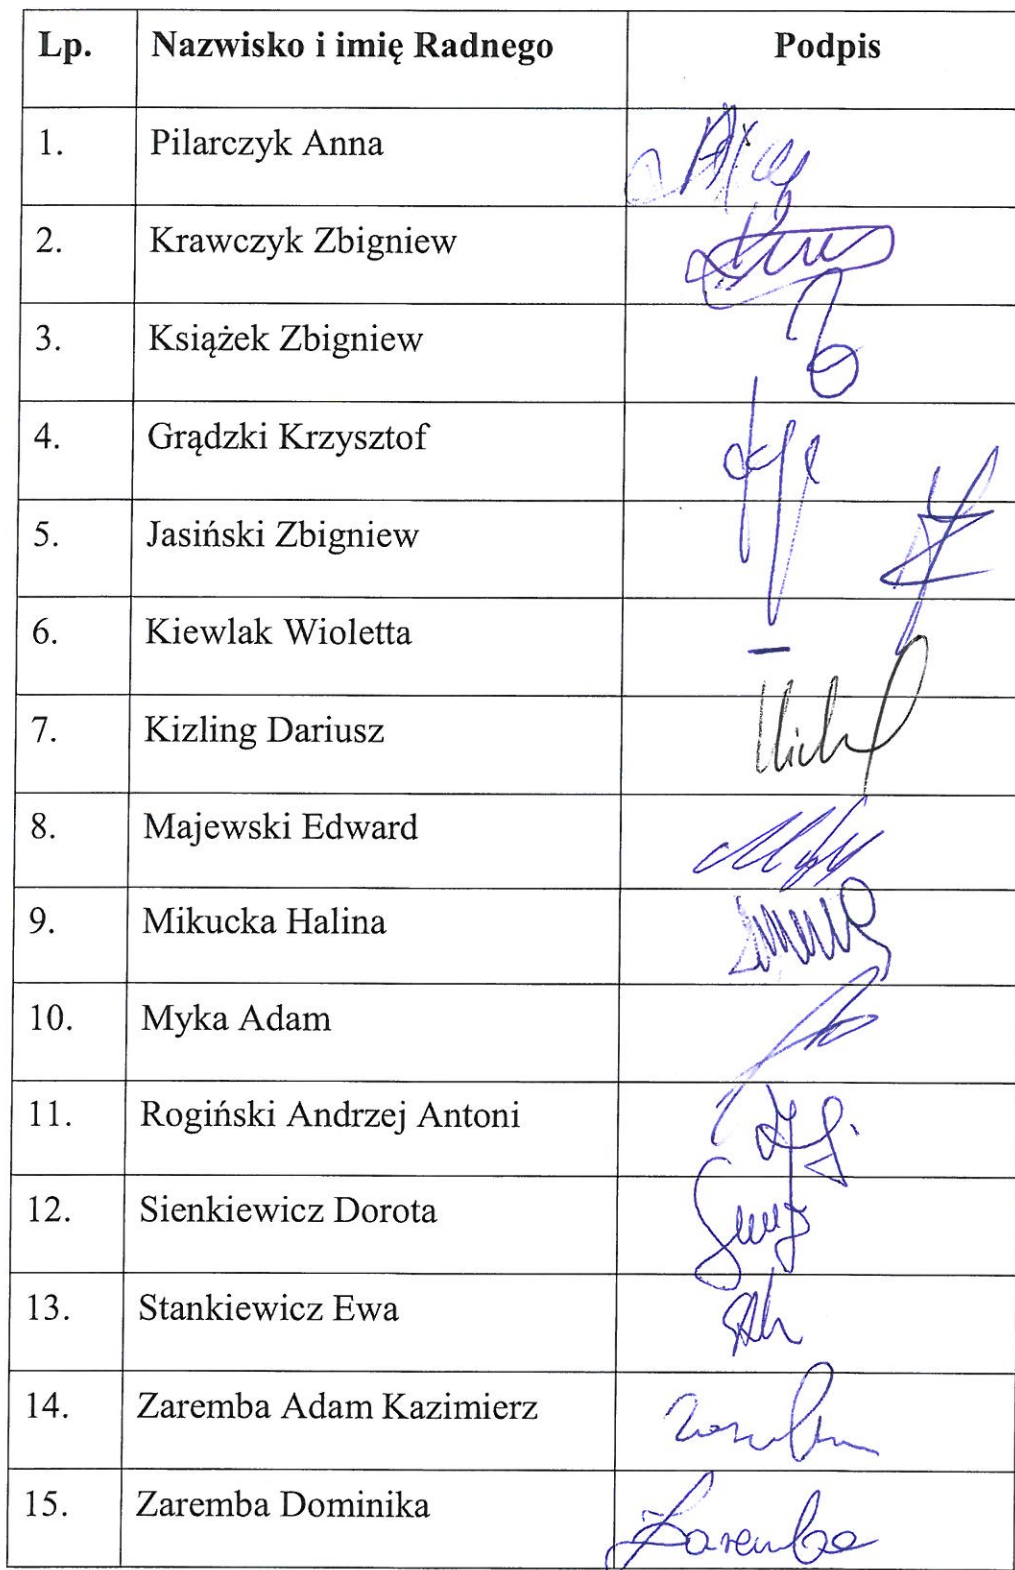 Lp. Nazwisko i imię Radnego Podpis
1. Pilarczyk Anna
2. Krawczyk Zbigniew
3. Książek Zbigniew
4. Grądzki Krzysztof
5. Jasiński Zbigniew
6. Kiewlak Wioletta –
7. Kizling Dariusz
8. Majewski Edward
9. Mikucka Halina
10. Myka Adam
11. Rogiński Andrzej Antoni
12. Sienkiewicz Dorota
13. Stankiewicz Ewa
14. Zaremba Adam Kazimierz
15. Zaremba Dominika Zaremba